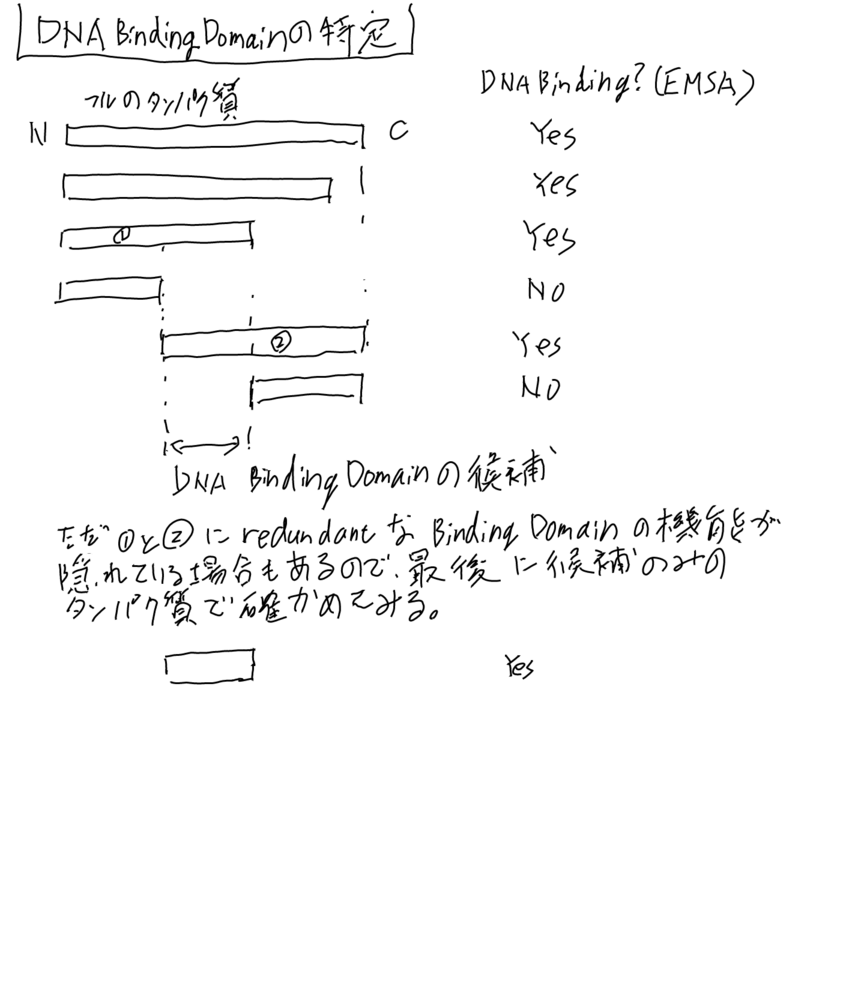 DNA Binding Domainの特定
DNA Binding? (EMSA)
フルのタンパク質
N C Yes
Yes
① Yes
NO
② Yes
NO
DNA Binding Domainの候補
ただ①と②にredundantなBinding Domainの機能が
隠れている場合もあるので、最後に候補のみの
タンパク質で確かめてみる。
Yes